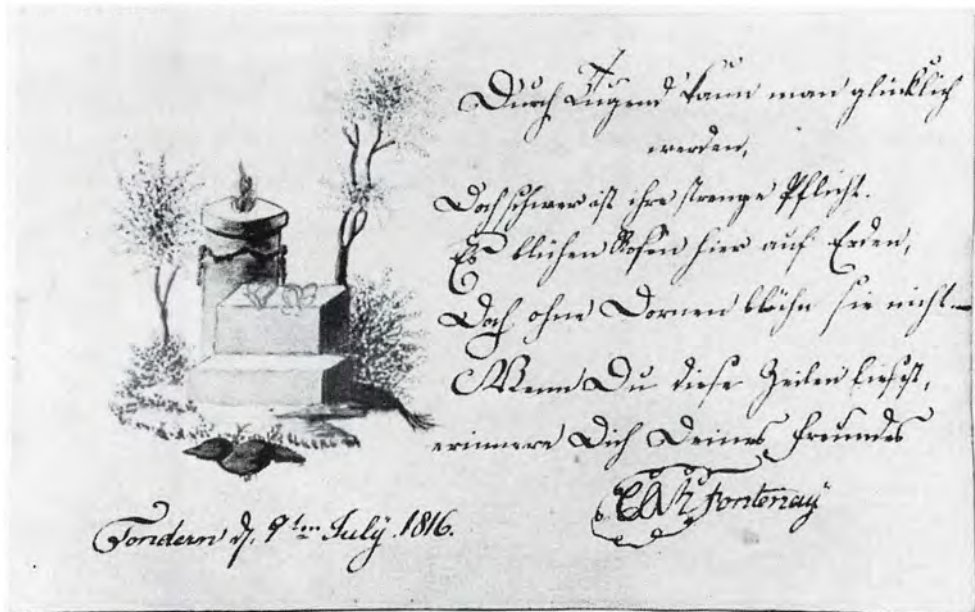 Durch Tugend kann man glücklich
werden,
Doch schwer ist ihre strenge Pflicht.
Es blühen Rosen hier auf Erden,
Doch ohne Dornen blühn sie nicht.
Wenn Du diese Zeilen liesest,
erinnere Dich Deines Freundes
Fontenay
Tondern d. 9ten July 1816.